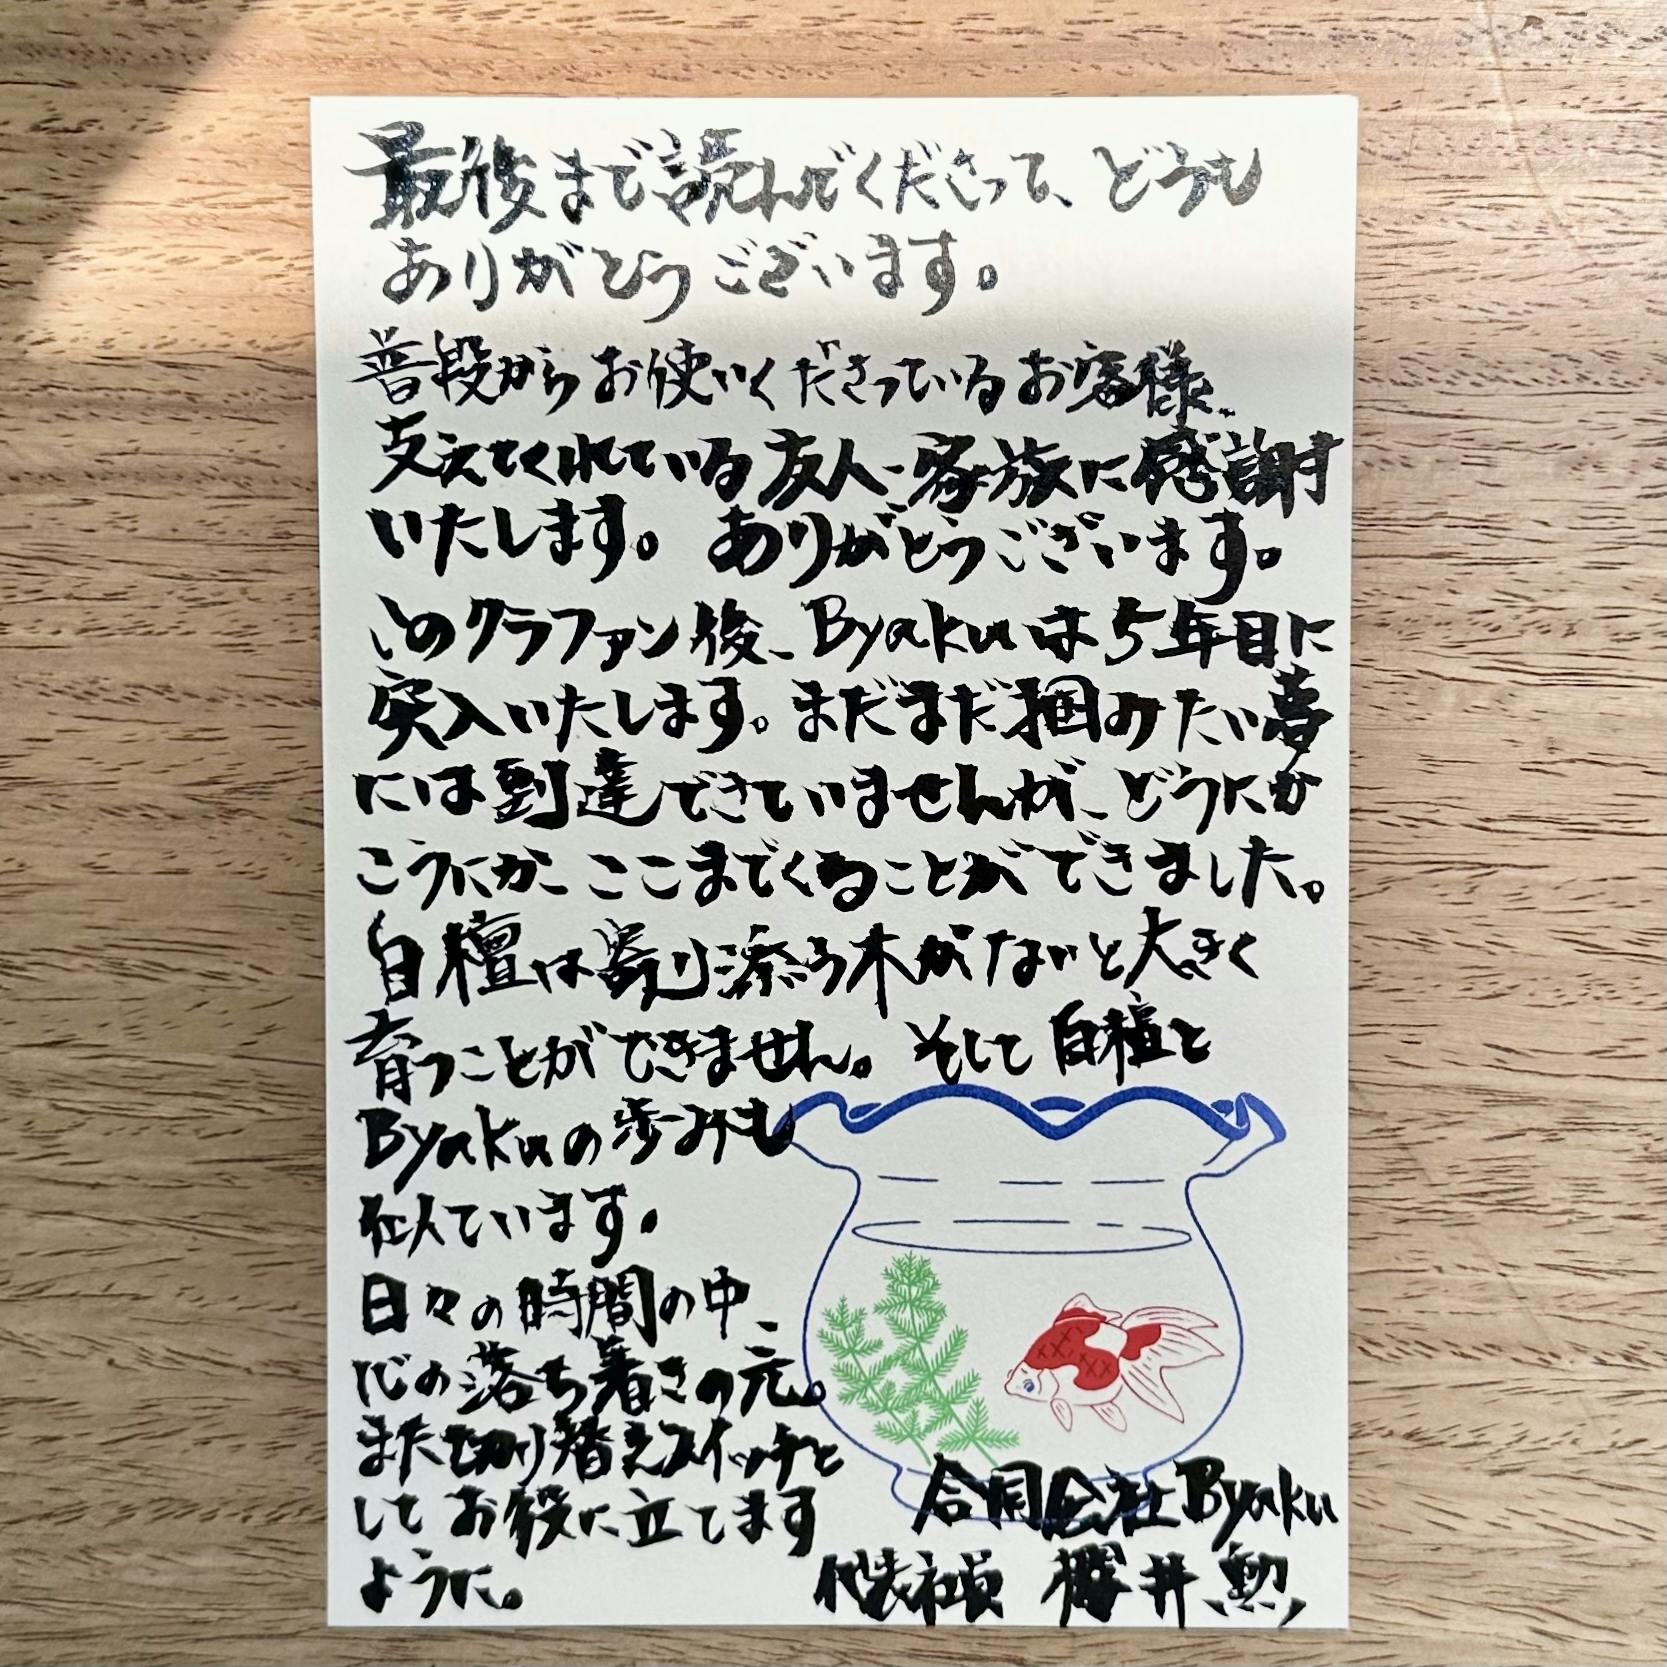 最後まで読んでくださって、どうも
ありがとうございます。
普段からお使いくださっているお客様、
支えてくれている友人、家族に感謝
いたします。ありがとうございます。
このクラファン後、Byakuは5年目に
突入いたします。まだまだ掴みたい夢
には到達できていませんが、どうにか
こうにか ここまでくることができました。
白檀は寄り添う木がないと大きく
育つことができません。そして白檀と
Byakuの歩みも
似ています。
日々の時間の中、
心の落ち着きの元。
また切り替えスイッチと
してお役に立てます
ように。
合同会社Byaku
代表社員 井 勲